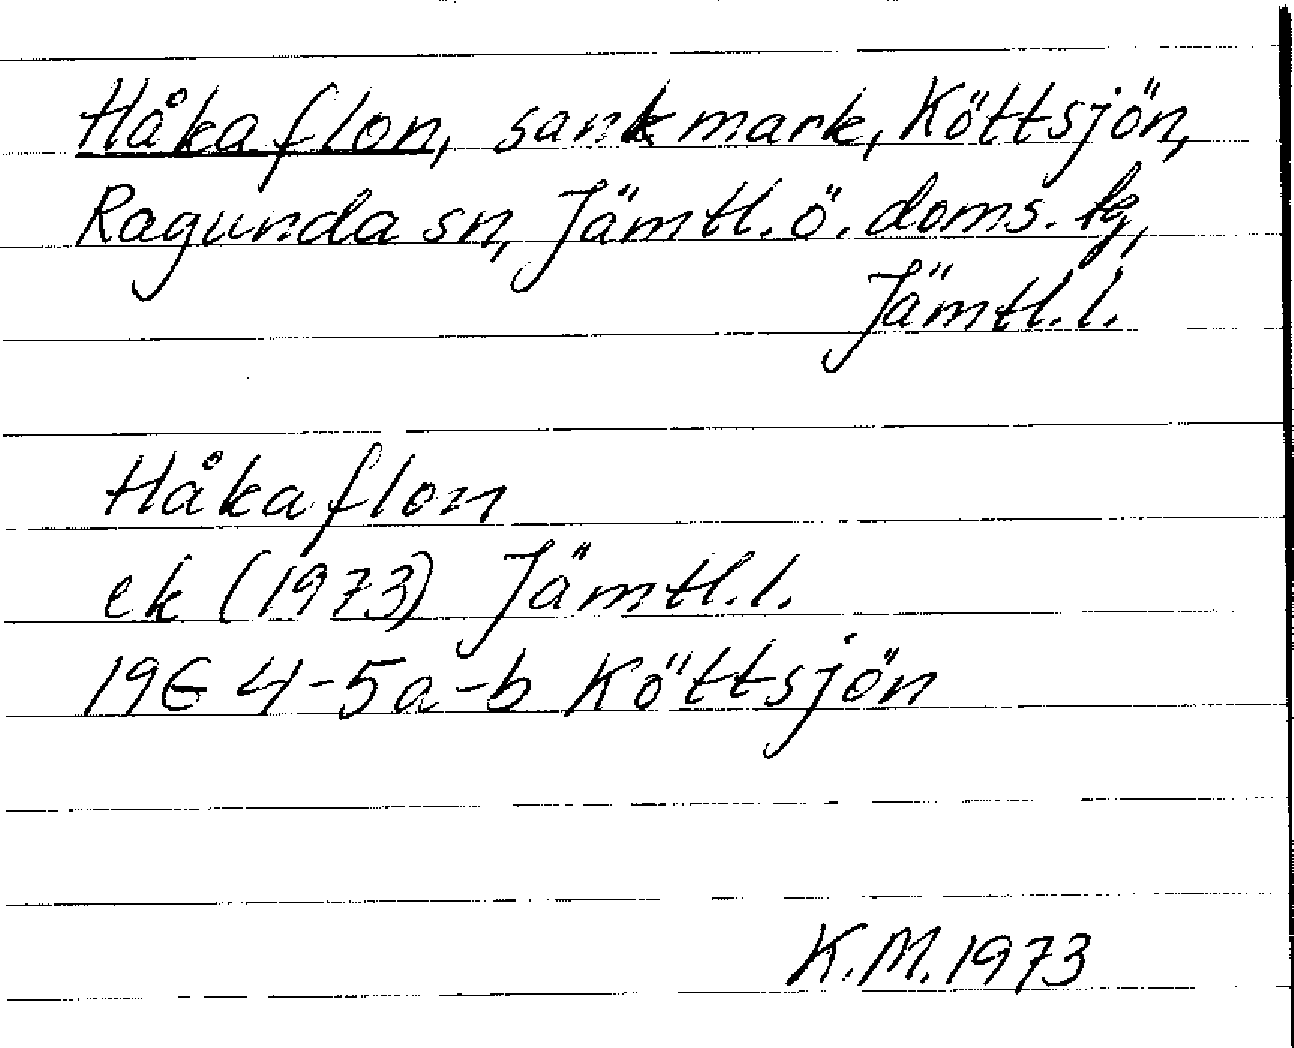 Håkaflon, sankmark, Köttsjön,
Ragunda sn, Jämtl. ö. doms. lg,
Jämtl. l.
Håkaflon
ek (1973) Jämtl. l.
19E 4-5a-b Köttsjön
K.M. 1973